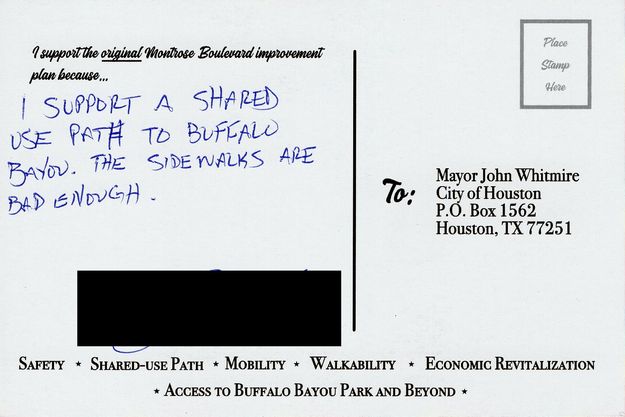 I support the original Montrose Boulevard improvement
plan because...
I SUPPORT A SHARED
USE PATH TO BUFFALO
BAYOU. THE SIDEWALKS ARE
BAD ENOUGH.
Place
Stamp
Here
To:
Mayor John Whitmire
City of Houston
P.O. Box 1562
Houston, TX 77251
SAFETY ★ SHARED-USE PATH ★ MOBILITY ★ WALKABILITY ★ ECONOMIC REVITALIZATION
★ ACCESS TO BUFFALO BAYOU PARK AND BEYOND ★